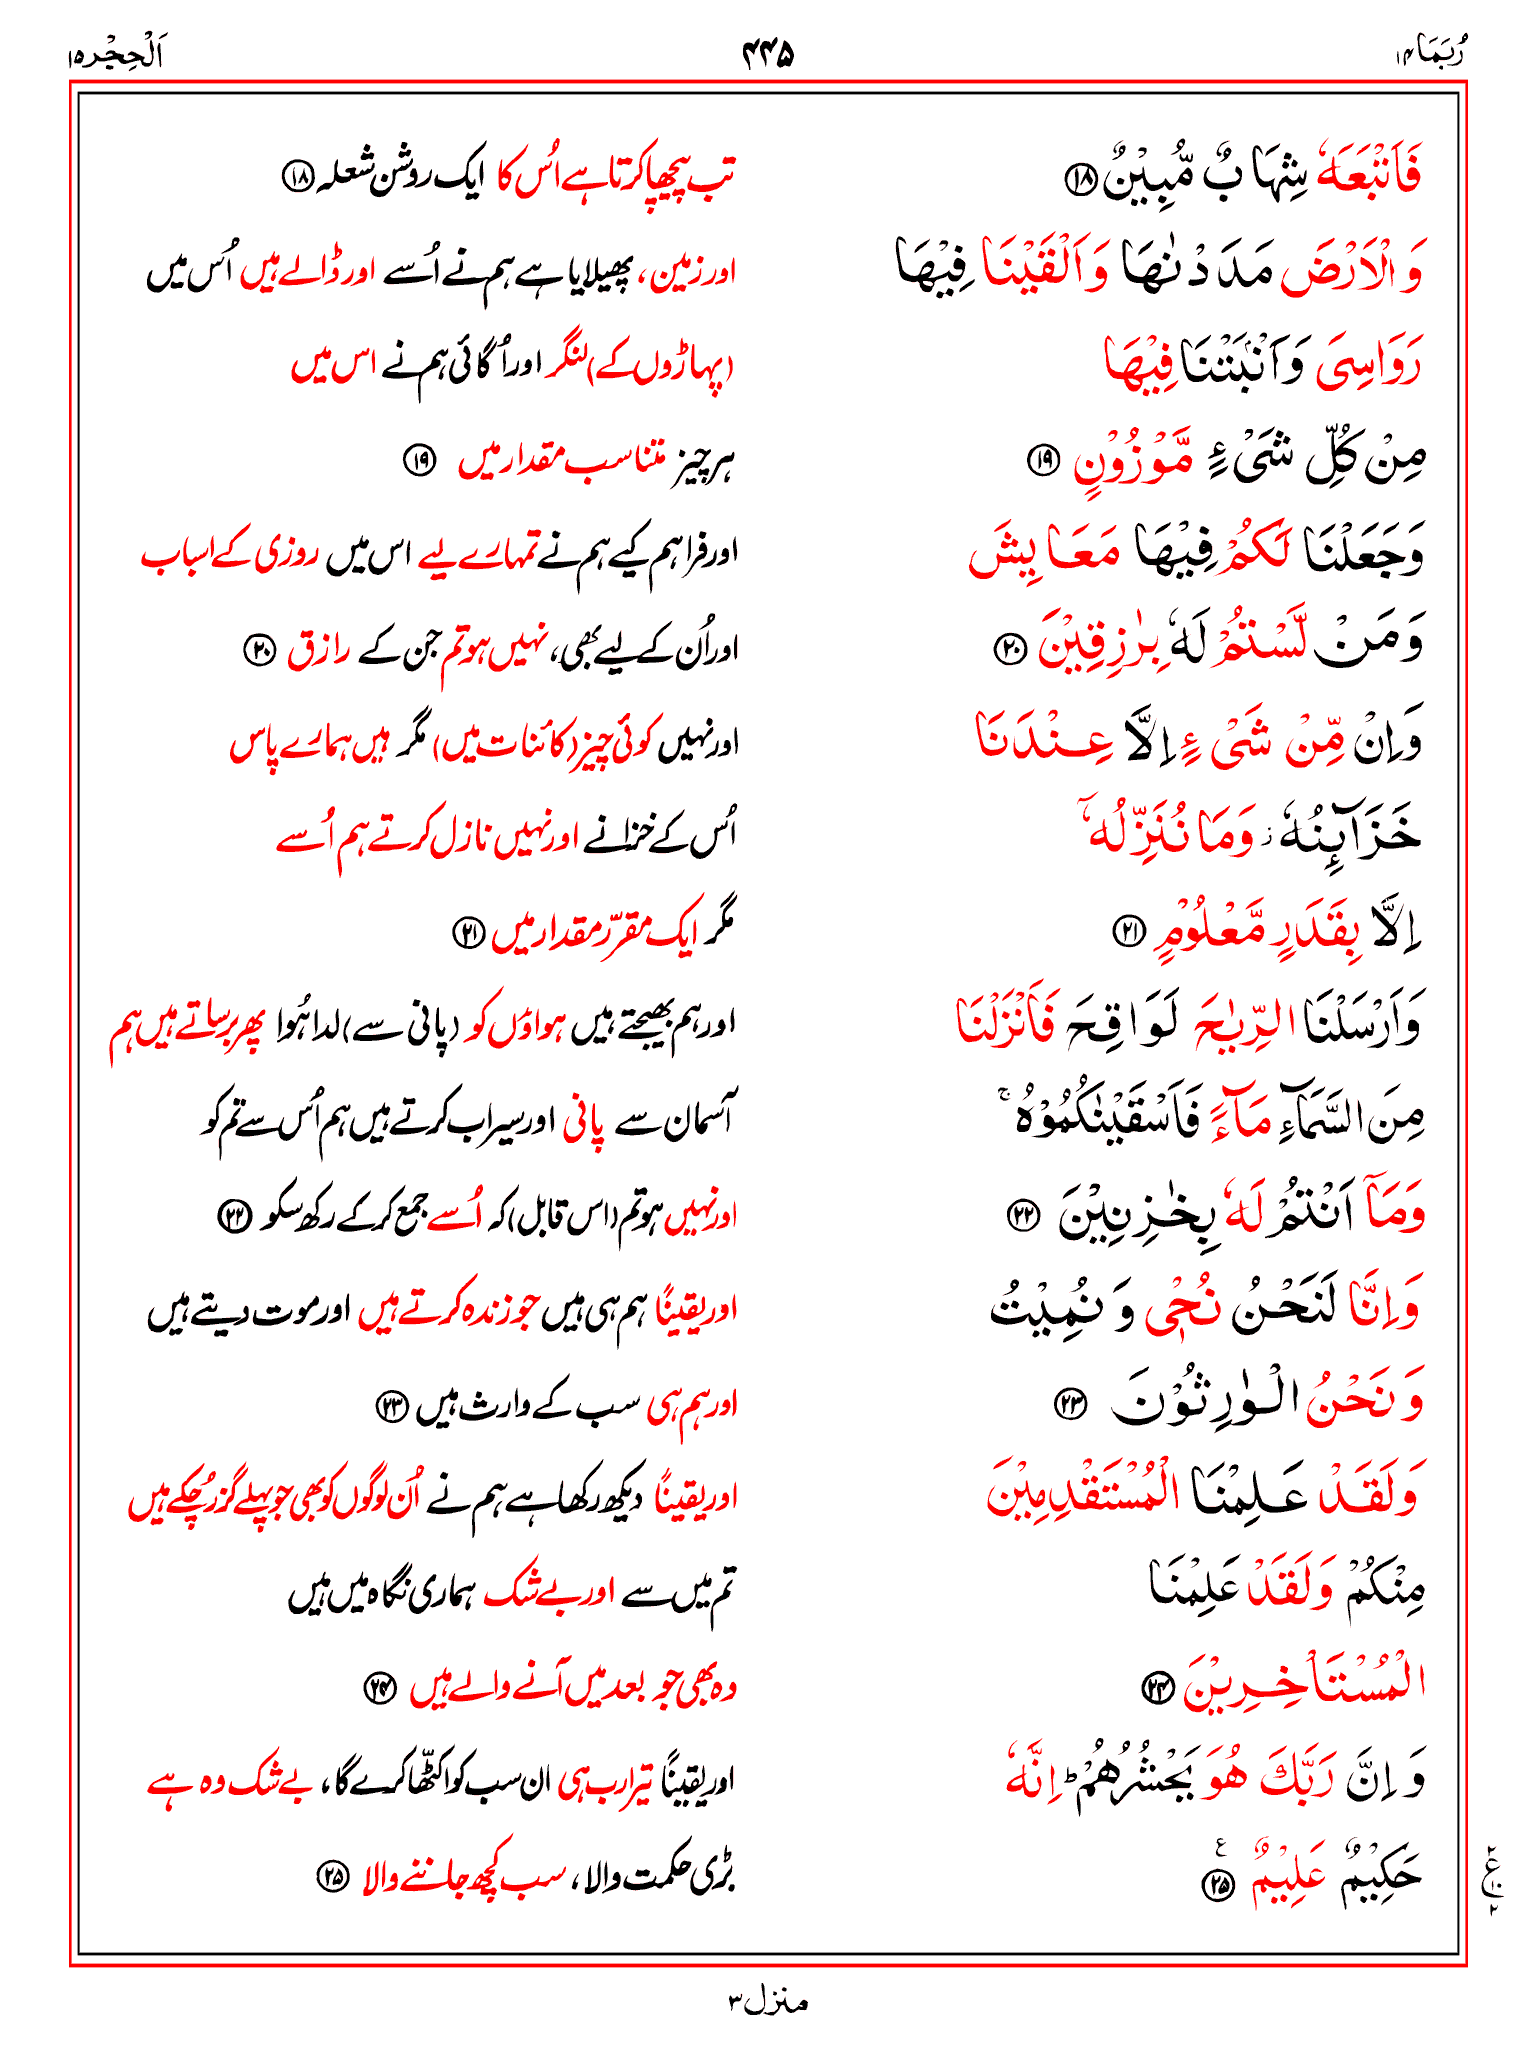 رُبَمَا ۱۴ ۴۴۵ اَلْحِجْر ۱۵
فَاَتْبَعَهٗ شِهَابٌ مُّبِيْنٌ ۱۸ تب پیچھا کرتا ہے اُس کا ایک روشن شعلہ ۱۸
وَالْاَرْضَ مَدَدْنٰهَا وَاَلْقَيْنَا فِيْهَا اور زمین، پھیلایا ہے ہم نے اُسے اور ڈالے ہیں اُس میں
رَوَاسِىَ وَاَنْۢبَتْنَا فِيْهَا (پہاڑوں کے) لنگر اور اُگائی ہم نے اس میں
مِنْ كُلِّ شَىْءٍ مَّوْزُوْنٍ ۱۹ ہر چیز متناسب مقدار میں ۱۹
وَجَعَلْنَا لَكُمْ فِيْهَا مَعَايِشَ اور فراہم کیے ہم نے تمہارے لیے اس میں روزی کے اسباب
وَمَنْ لَّسْتُمْ لَهٗ بِرٰزِقِيْنَ ۲۰ اور اُن کے لیے بھی، نہیں ہو تم جن کے رازق ۲۰
وَاِنْ مِّنْ شَىْءٍ اِلَّا عِنْدَنَا اور نہیں کوئی چیز (کائنات میں) مگر ہیں ہمارے پاس
خَزَآىِٕنُهٗ ز وَمَا نُنَزِّلُهٗٓ اُس کے خزانے اور نہیں نازل کرتے ہم اُسے
اِلَّا بِقَدَرٍ مَّعْلُوْمٍ ۲۱ مگر ایک مقرّر مقدار میں ۲۱
وَاَرْسَلْنَا الرِّيٰحَ لَوَاقِحَ فَاَنْزَلْنَا اور ہم بھیجتے ہیں ہواؤں کو (پانی سے) لدا ہُوا پھر برساتے ہیں ہم
مِنَ السَّمَآءِ مَآءً فَاَسْقَيْنٰكُمُوْهُ ۚ آسمان سے پانی اور سیراب کرتے ہیں ہم اُس سے تم کو
وَمَآ اَنْتُمْ لَهٗ بِخٰزِنِيْنَ ۲۲ اور نہیں ہو تم (اس قابل) کہ اُسے جمع کر کے رکھ سکو ۲۲
وَاِنَّا لَنَحْنُ نُحْىٖ وَنُمِيْتُ اور یقیناً ہم ہی ہیں جو زندہ کرتے ہیں اور موت دیتے ہیں
وَنَحْنُ الْوٰرِثُوْنَ ۲۳ اور ہم ہی سب کے وارث ہیں ۲۳
وَلَقَدْ عَلِمْنَا الْمُسْتَقْدِمِيْنَ اور یقیناً دیکھ رکھا ہے ہم نے اُن لوگوں کو بھی جو پہلے گزر چُکے ہیں
مِنْكُمْ وَلَقَدْ عَلِمْنَا تم میں سے اور بے شک ہماری نگاہ میں ہیں
الْمُسْتَاْخِرِيْنَ ۲۴ وہ بھی جو بعد میں آنے والے ہیں ۲۴
وَاِنَّ رَبَّكَ هُوَ يَحْشُرُهُمْ ؕ اِنَّهٗ اور یقیناً تیرا رب ہی ان سب کو اکٹھّا کرے گا، بے شک وہ ہے
حَكِيْمٌ عَلِيْمٌ ۲۵ ع بڑی حکمت والا، سب کچھ جاننے والا ۲۵
۲ ع ۱۰ ۲
منزل ۳